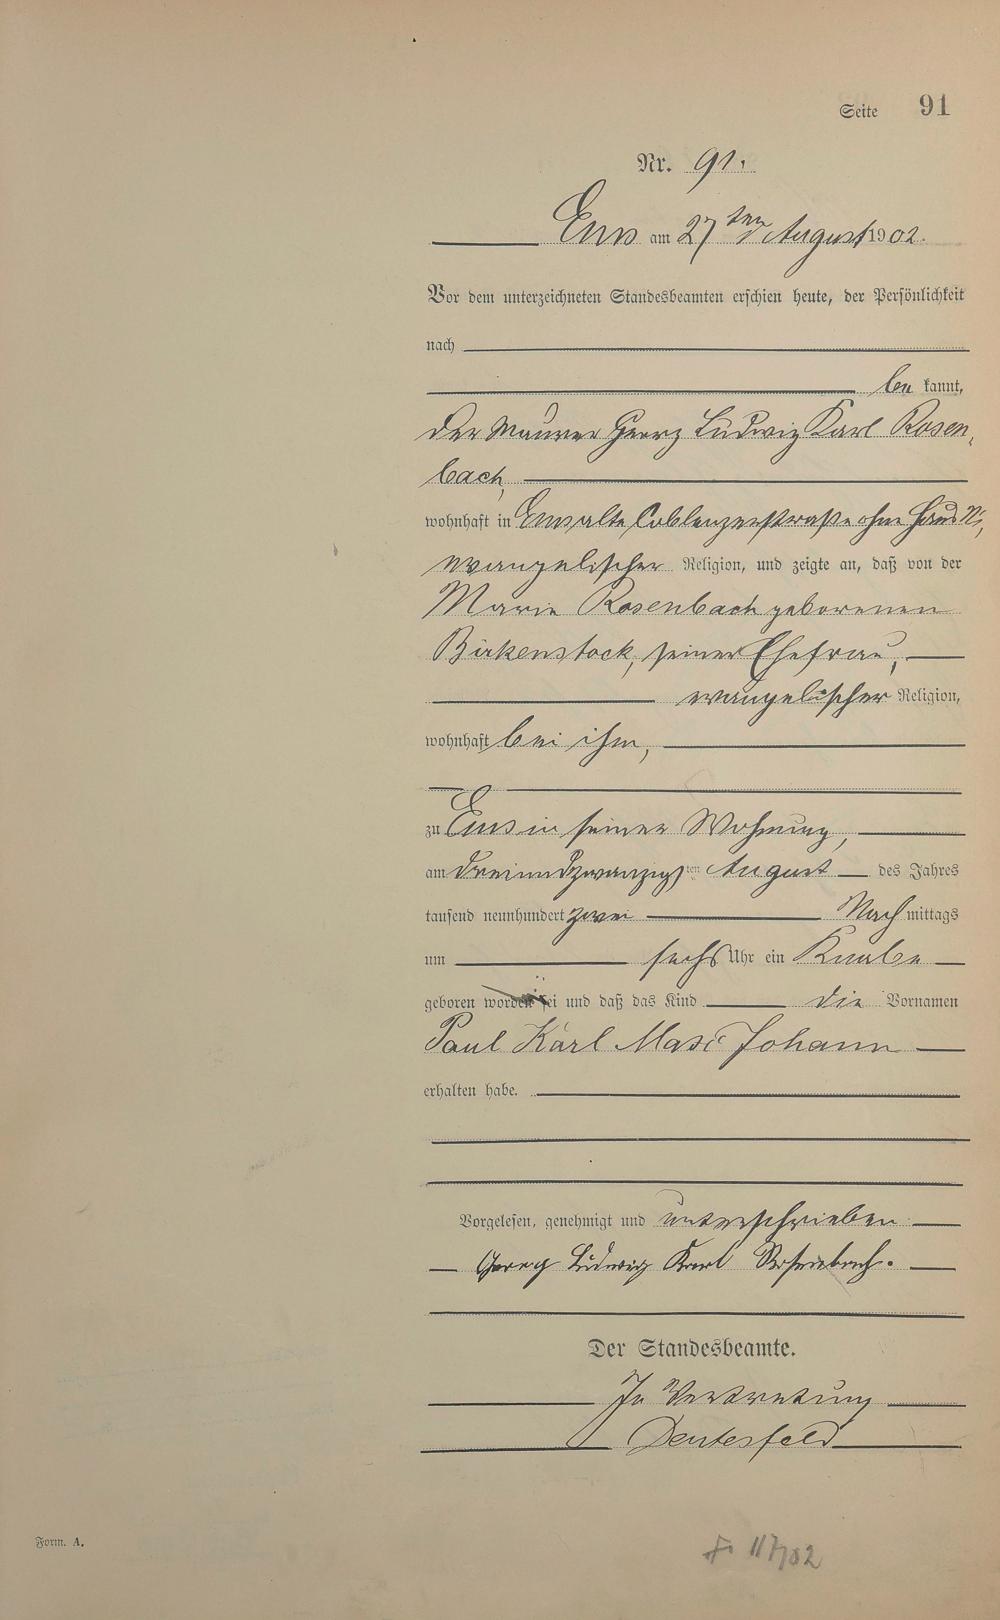 Seite 91
Nr. 91.
Ems am 27ten August 1902.
Vor dem unterzeichneten Standesbeamten erschien heute, der Persönlichkeit
nach
be kannt,
der Maurer Georg Ludwig Karl Rosen,
bach,
wohnhaft in Ems alte Coblenzerstraße ohne Haus Nr,
evangelischer Religion, und zeigte an, daß von der
Marie Rosenbach geborenen
Birkenstock, seiner Ehefrau,
evangelischer Religion,
wohnhaft bei ihm,
zu Ems in seiner Wohnung,
am dreiundzwanzigsten August des Jahres
tausend neunhundert zwei Nach mittags
um sechs Uhr ein Knabe
geboren worden sei und daß das Kind die Vornamen
Paul Karl Max Johann
erhalten habe.
Vorgelesen, genehmigt und unterschrieben
Georg Ludwig Karl Rosenbach.
Der Standesbeamte.
In Vertretung
Deutesfeld
Form. A.
117/02